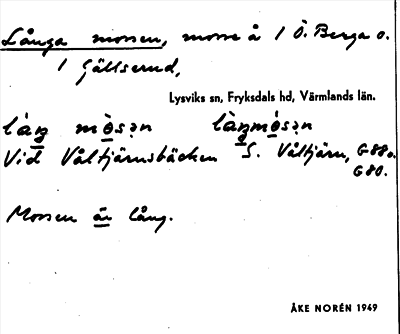 Långa mossen, mosse å 1 Ö. Berga o.
1 Gällserud,
Lysviks sn, Fryksdals hd, Värmlands län.
Vid Våltjärnsbäcken S. Våltjärn, G88o.
G80.
Mossen är lång.
ÅKE NORÉN 1949